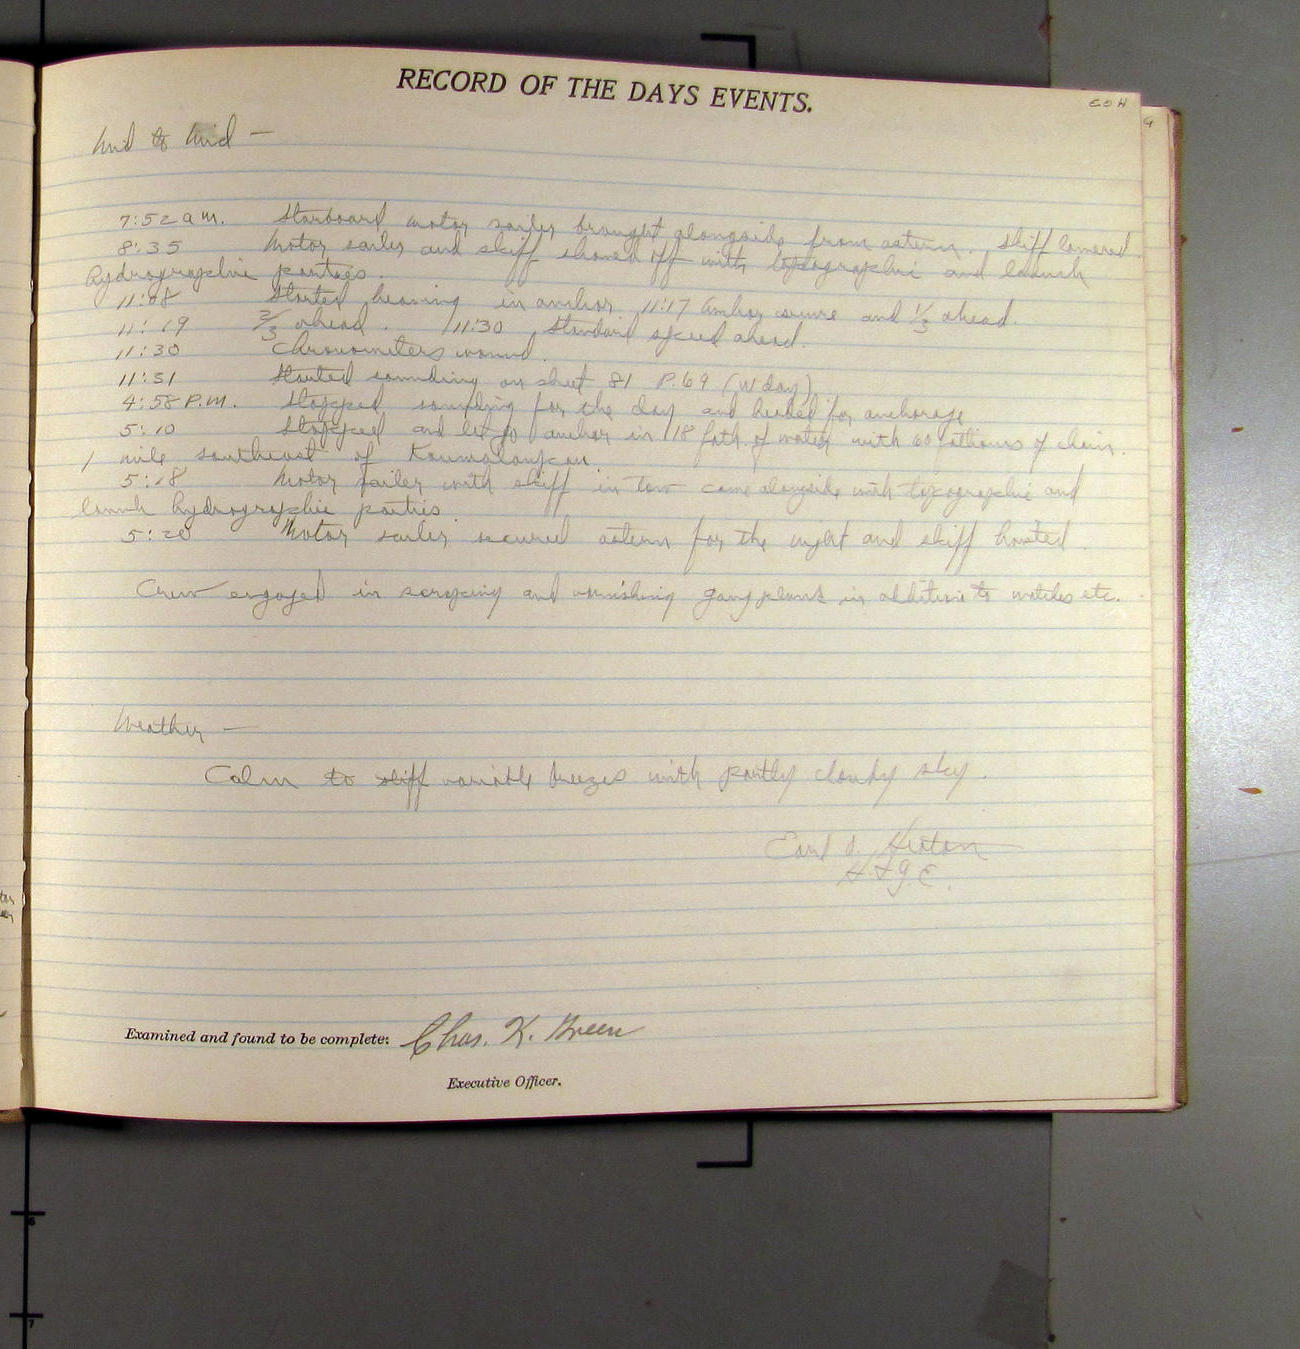 RECORD OF THE DAYS EVENTS.
EOH
Mid to Mid —
7:52 a.m. Starboard motor sailer brought alongside from astern. Skiff lowered.
8:35 Motor sailer and skiff shoved off with topographic and launch
hydrographic parties.
11:08 Started heaving in anchor. 11:17 Anchor secure and 1/3 ahead.
11:19 2/3 ahead. 11:30 Standard speed ahead.
11:30 Chronometers wound.
11:31 Started sounding on sheet 81 P.69 (W day)
4:58 P.M. Stopped sounding for the day and headed for anchorage
5:10 Stopped and let go anchor in 18 fath. of water with 60 fathoms of chain.
1 mile southeast of
5:18 Motor sailer with skiff in tow came alongside with topographic and
launch hydrographic parties.
5:20 Motor sailer secured astern for the night and skiff hoisted.
Crew engaged in scraping and varnishing gangplank in addition to watches etc.
Weather —
Calm to stiff variable breezes with partly cloudy sky.
Earl O. Heaton
H. & G. E.
Examined and found to be complete: Chas. K. Green
Executive Officer.
6
7